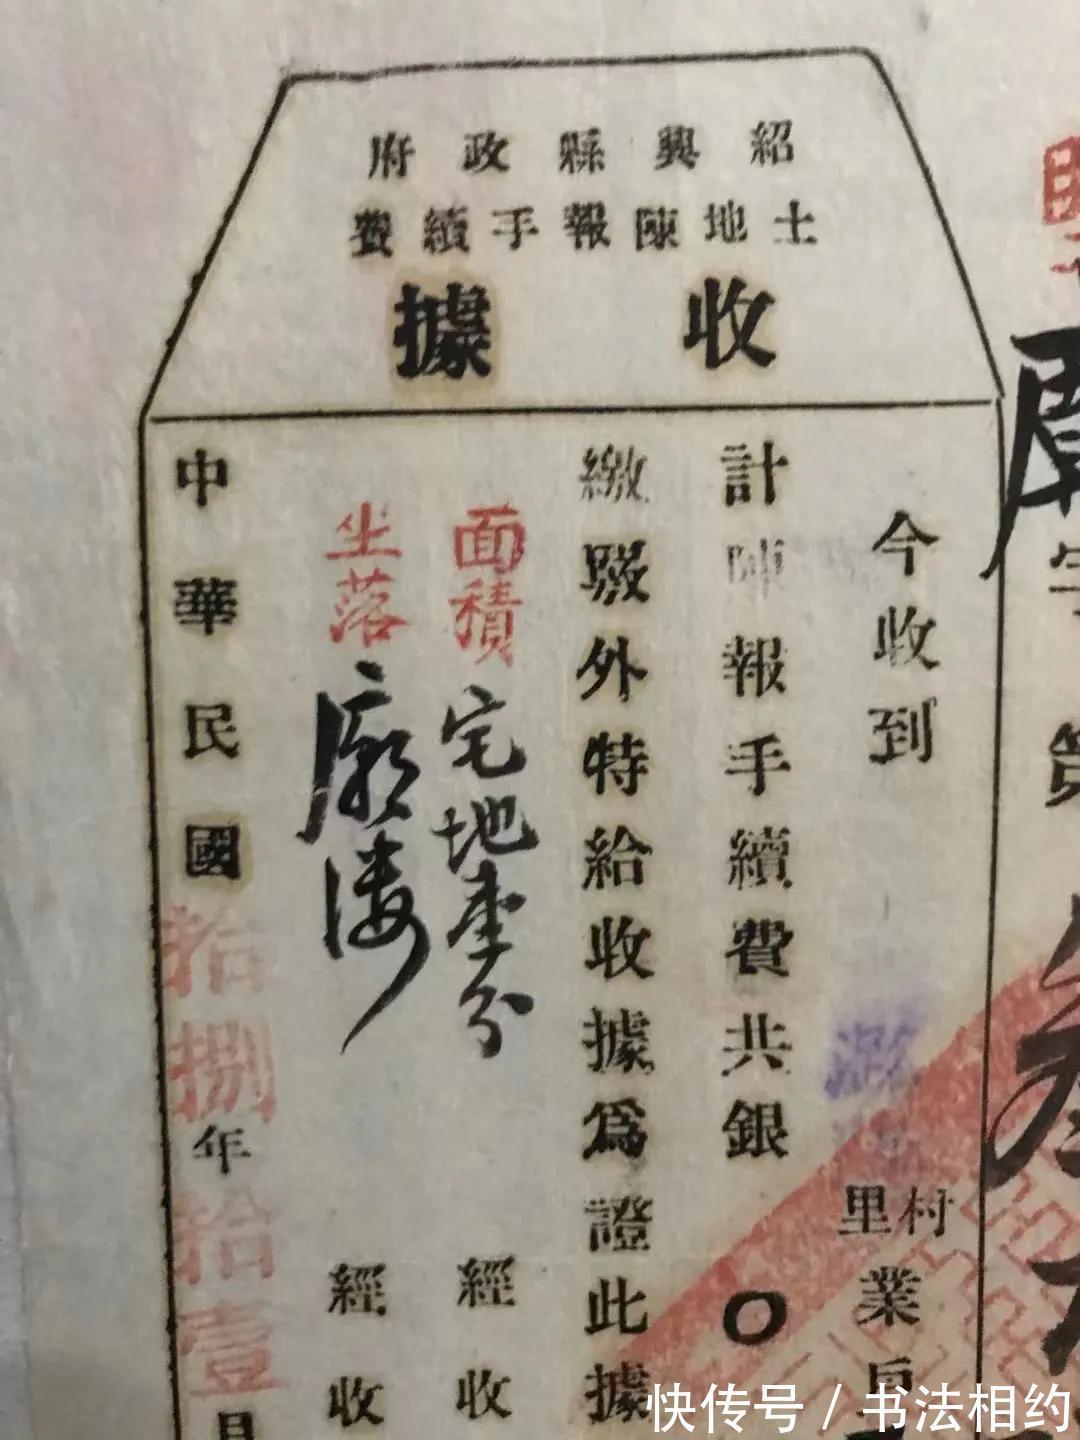 紹興縣政府
土地陳報手續費
收據
今收到
村
里
業戶
計陳報手續費共銀
繳驗外特給收據爲證此據
面積宅地
分
經收
坐落
經收
中華民國拾捌年拾壹月
字第
快传号 / 书法相约